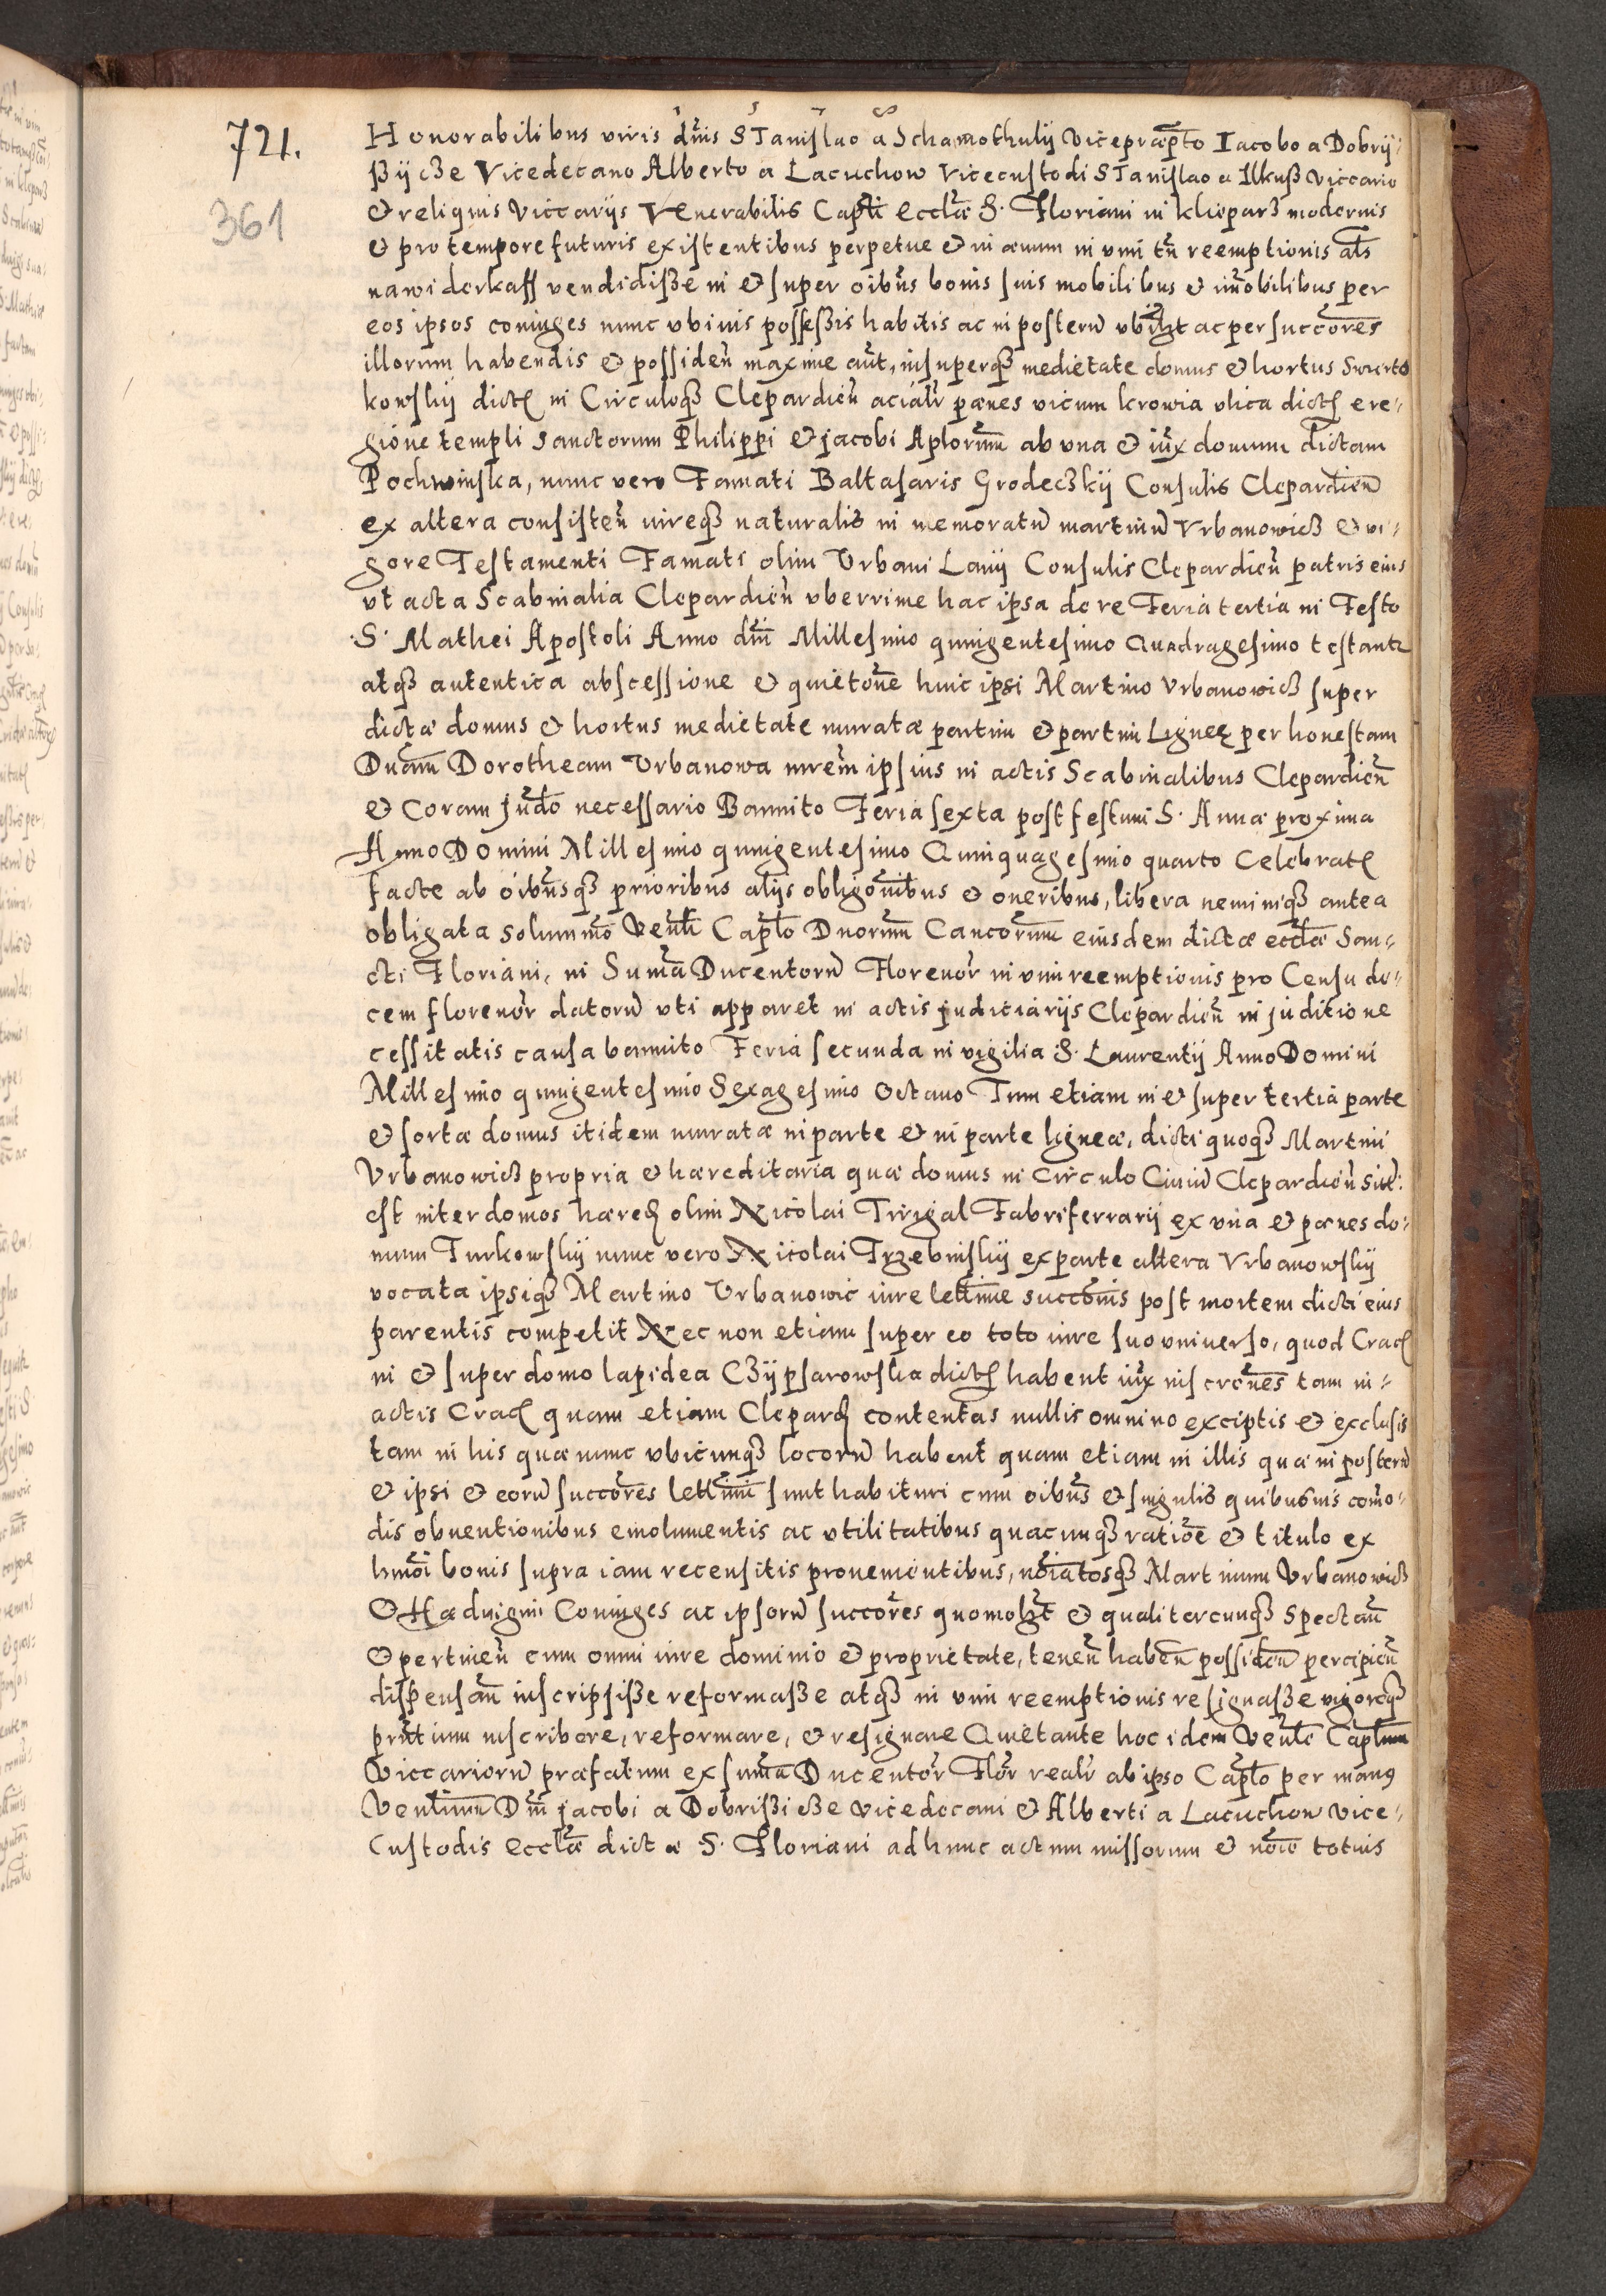 721.
361
1 5 7 8
Honorabilibus viris dnis STanislao a Schamothulij Vicepræpto Iacobo a Dobrÿ-
ßÿcze Vicedecano Alberto a Lacuchow Vicecustodi STanislao a Ilkuß Viccario
et reliquis Viccarijs Venerabilis Capti Ecclæ S. Floriani in Klieparz modernis
et pro tempore futuris existentibus perpetue et in æuum in vim tn reemptionis als
nawiderkaff vendidiße in et super oibus bonis suis mobilibus et immobilibus per
eos ipsos coniuges nunc vbiuis posseßis habitis ac in posterum vbilzt ac per succores
illorum habendis et possiden maxime aut, insuperqz medietate domus et hortus Swierto
kowskij dict in Circuloqz Clepardien aciali pænes vicum krowia vlica dict e re-
gione templi sanctorum Philippi et jacobi Aplorum ab vna et iux domum dictam
Pochwinska, nunc vero Famati Baltasaris Grodeczkij Consulis Clepardien
ex altera consisten iureqz naturalis in memoratum martinum Vrbanowicz et vi-
gore Testamenti Famati olim Vrbani Lanij Consulis Clepardien patris eius
vt acta Scabinalia Clepardien vberrime hac ipsa de re Feria tertia in Festo
S. Mathei Apostoli Anno dni Millesimo quingentesimo Quadragesimo testantr
atqz autentica abscessione et quietone huic ipsi Martino Vrbanowicz super
dictæ domus et hortus medietate muratæ partim et partim Ligneę per honestam
Dnam Dorotheam Vrbanowa mrem ipsius in actis Scabinalibus Clepardien
et Coram Judo necessario Bannito Feria sexta post festum S. Annæ proxima
Anno Domini Millesimo quingentesimo Quinquagesimo quarto Celebrat
facte ab oibusqz prioribus alijs obligonibus et oneribus, libera neminiqz antea
obligata solummo Venli Caplo Dnorum Cancorum eiusdem dictæ ecclæ San-
cti Floriani, in Suma Ducentorum Florenor in vim reemptionis pro Censu de-
cem florenor datorum vti apparet in actis judiciarijs Clepardien in juditio ne
cessitatis causa bannito Feria secunda in vigilia S. Laurentij Anno Domini
Millesimo quingentesimo Sexagesimo Octauo Tum etiam in et super tertia parte
et sortæ domus itidem muratæ in parte et in parte ligneæ, dicti quoqz Martini
Vrbanowicz propria et hæreditaria quæ domus in Circulo Ciuium Clepardien sit:
est inter domos hæred olim Nicolai Trigal Fabriferrarij ex vna et pænes do-
mum Turkowskij nunc vero Nicolai Trzebinskij ex parte altera Vrbanowskij
vocata ipsiqz Martino Vrbanowic iure lettime succonis post mortem dicti eius
parentis competit Nec non etiam super eo toto iure suo vniuerso, quod Crac
in et super domo lapidea Czÿpsarowska dict habent iux inscrones tam in-
actis Crac quam etiam Clepard contentas nullis omnino exciptis et exclusis
tam in his quæ nunc vbicunqz locorum habent quam etiam in illis quæ in posterum
et ipsi et eorum succores lettimi sunt habituri cum oibus et singulis quibusuis como-
dis obuentionibus emolumentis ac vtilitatibus quacunqz ratioe et titulo ex
hmoi bonis supra iam recensitis prouenientibus, noiatosqz Martinum Vrbanowicz
et Hæduigim Coniuges ac ipsorum succores quomolzt et qualitercunqz spectan
et pertinen cum omni iure dominio et proprietate, tenen haben possiden percipien
dispensan inscripsiße reformaße atqz in vim reemptionis resignaße vigoreqz
pntium inscribere, reformare, et resignare Quietante hoc idem Venle Caplum
Viccariorum præfatum ex suma Ducentor Flor reali ab ipso Caplo per manus
Venlium Dni jacobi a Dobrißicze vicedecani et Alberti a Lacuchow vice-
Custodis Ecclæ dictæ S. Floriani ad hunc actum missorum et noie totius